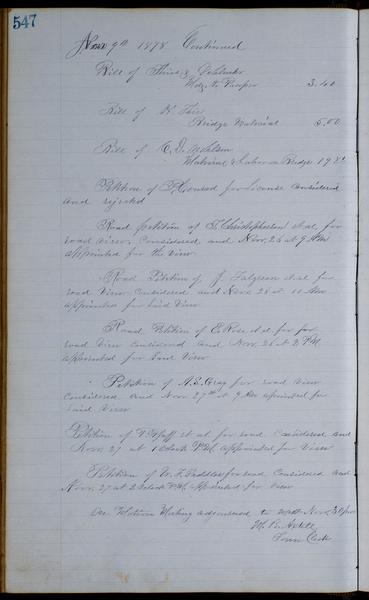 547
Nov 9th 1878 Continued
Bill of
Mdg. to Pauper 3.40
Bill of N.
Bridge Material 5.00
Bill of C. D.
Material & Labor on Bridge
Petition of Conrad for license Considered
and rejected
Road petition of Christopherson et al for
road view, Considered, and Nov. 26 at 9 AM
appointed for the view
Road Petition of J. et al for
road View Considered and Nov. 26 at 11 AM
appointed for said View
Road, Petition of E. Rose et al for
road View Considered and Nov. 26 at 2 PM
appointed for Said View
Petition of A. E. Gray for road View
Considered and Nov 27th at 9 AM appointed for
Said View
Petition of Pfaff et al for road Considered and
Nov. 27 at 1 Oclock P.M. appointed for View
Petition of for road, Considered and
Nov. 27 at 2 Oclock P.M. appointed for View
On Motion Meeting adjourned to Nov. 30
M. B.
Town Clerk